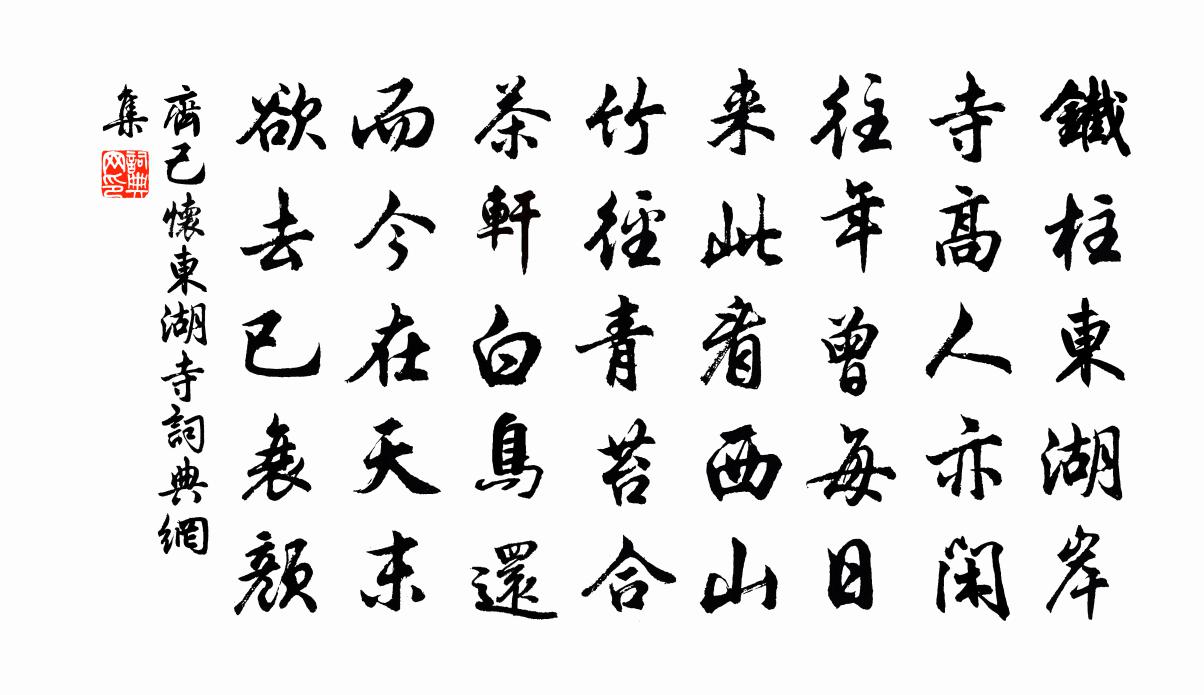 鐵柱東湖岸
寺高人亦閑
往年曾每日
來此看西山
竹徑青苔合
茶軒白鳥還
而今在天末
欲去已衰顏
齊己懷東湖寺詞典網
集
詞典
网印